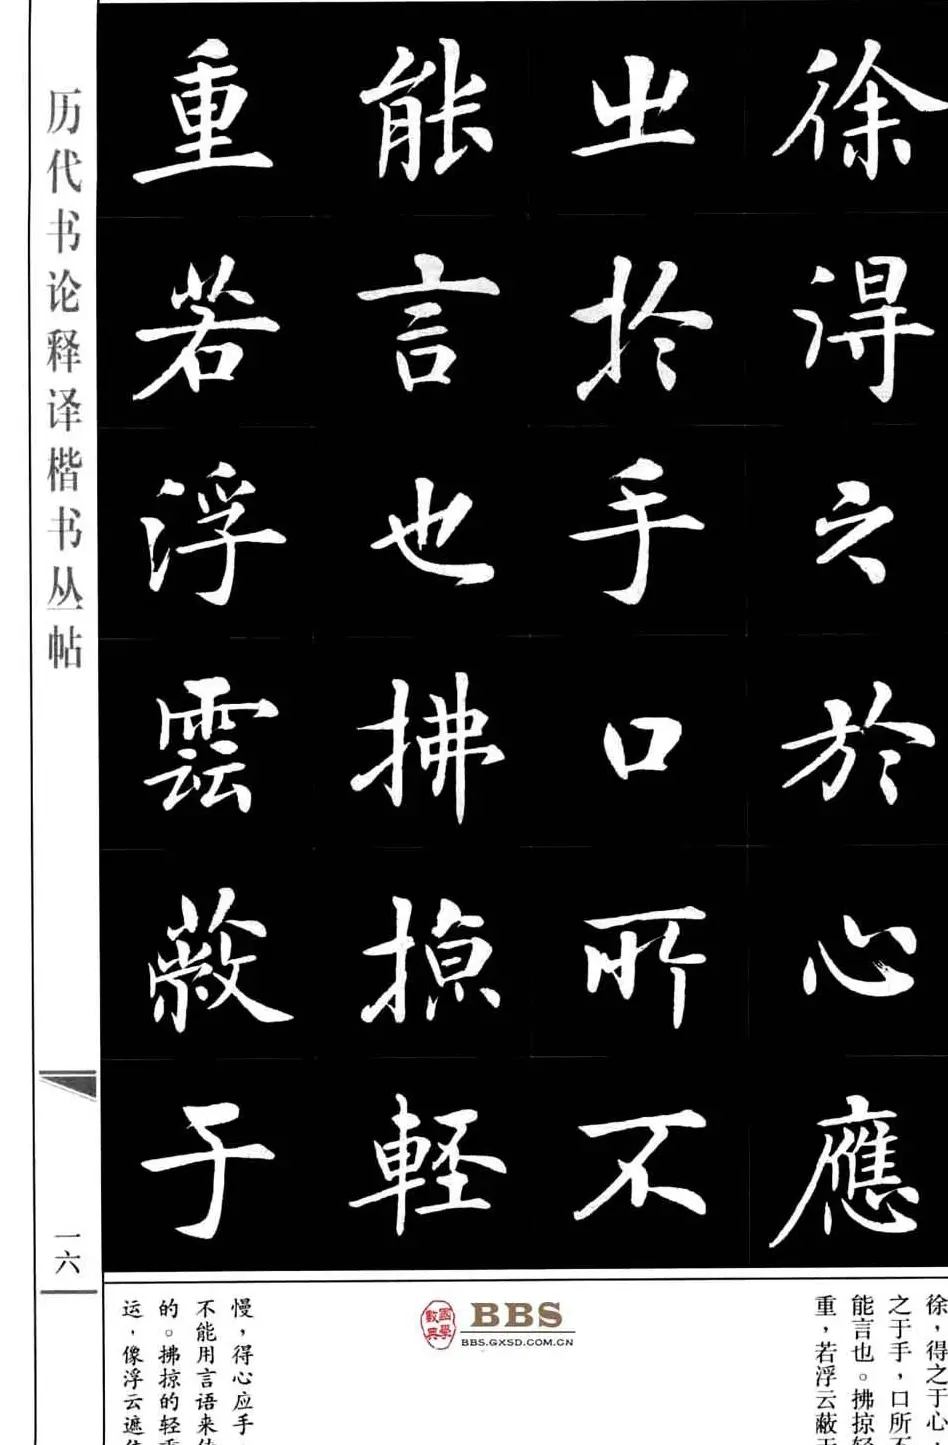 徐得之於心應
出於手口所不
能言也拂掠輕
重若浮雲蔽于
历代书论释译楷书丛帖
一六
徐，得之于心，
之于手，口所不
能言也。拂掠轻
重，若浮云蔽于
國學數典
BBS
BBS.GXSD.COM.CN
慢，得心应手
不能用言语来
的。拂掠的轻重
运，像浮云遮